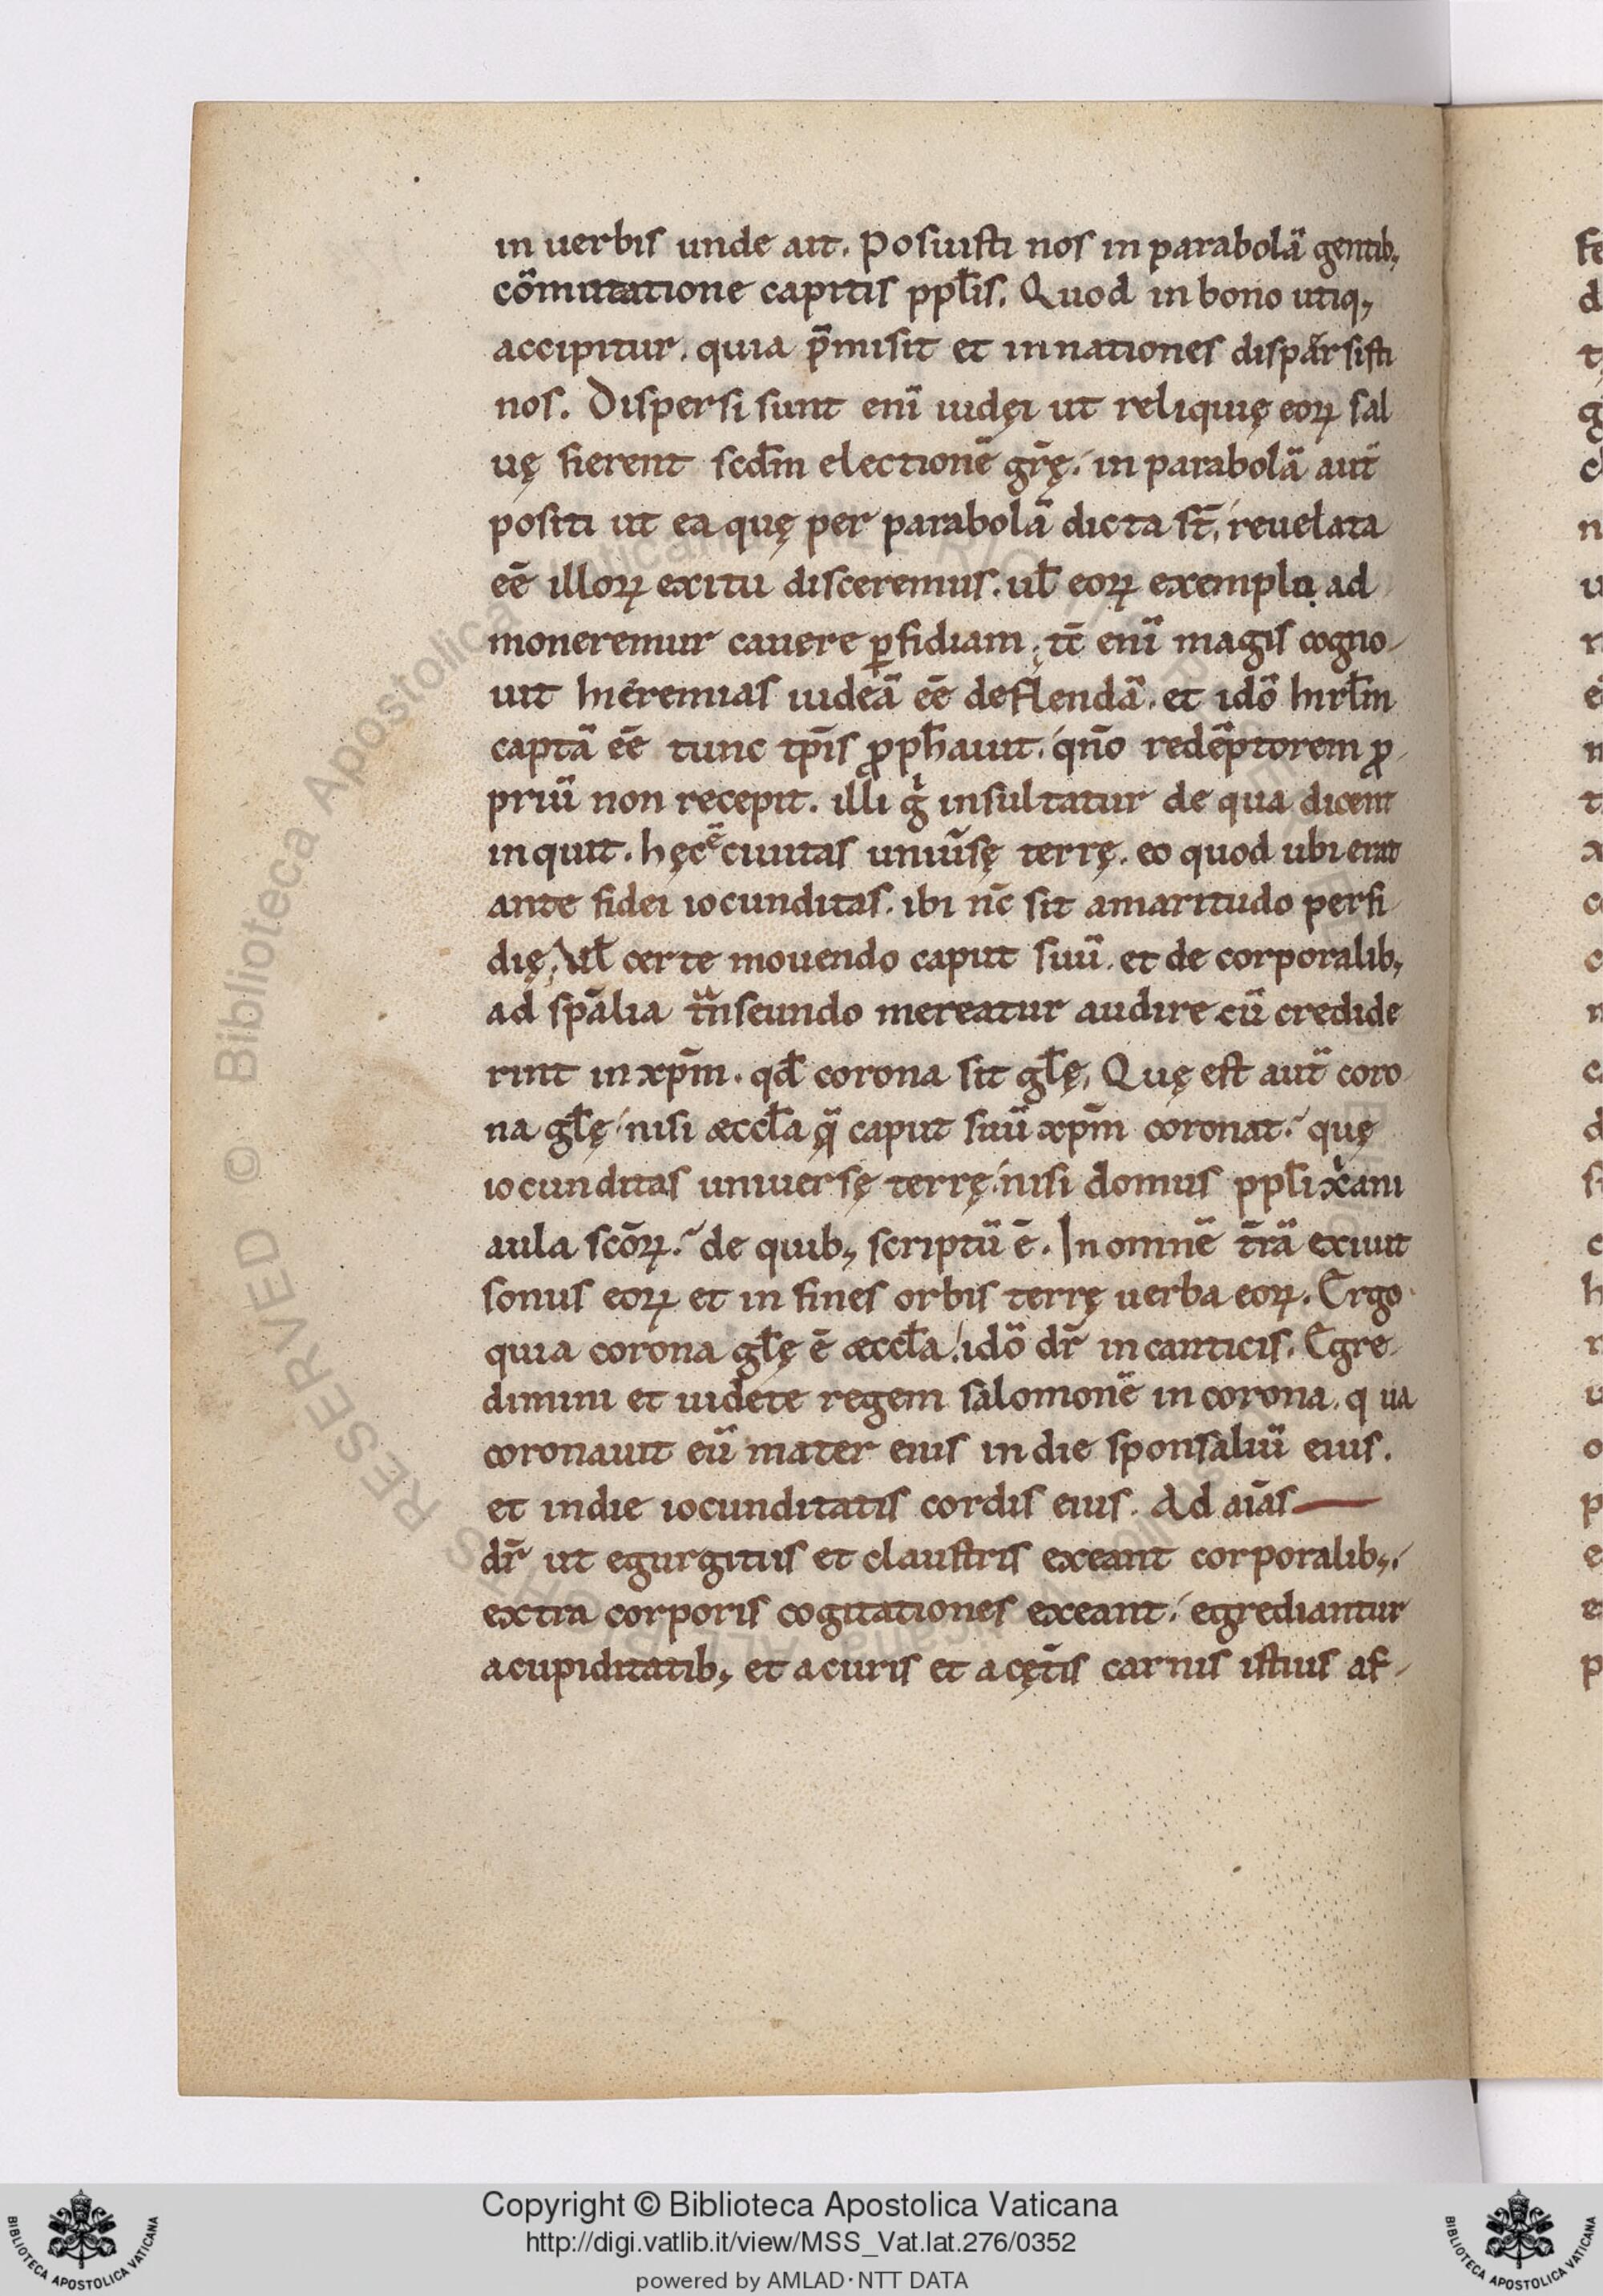 in uerbis unde ait. Posuisti nos in parabolā gentib;
cōmutatione capitis ppl̄is. Quod in bono utiq;
accipitur. quia p̄misit et in nationes disparsisti
nos. Dispersi sunt enī iudęi ut reliquię eoꝝ sal
uę fierent scd̄m electionē gr̄ę. in parabolā aut̄
positi ut ea quę per parabolā dicta st̄, reuelata
eē illoꝝ exitu disceremus. ul̄ eoꝝ exemplo ad
moneremur cauere ꝑfidiam. tc̄ enī magis cogno-
uit hieremias iudeā eē deflendā. et idō hirl̄m
captā eē tunc tp̄is ꝓph̄auit. qn̄o redēptorem ꝓ-
priū non recepit. illi g̊ insultatur de qua dicent
inquit. hęc ē ciuitas uniūsę terrę. eo quod ubi erat
ante fidei iocunditas. ibi nc̄ sit amaritudo perfi-
dię; Vl̄ certe mouendo caput suū. et de corporalib;
ad sp̄alia tn̄seundo mereatur audire cū credide
rint in xp̄m. qd̄ corona sit gl̄ę. Quę est aut̄ coro-
na gl̄ę nisi æccl̄a q̄ caput suū xp̄m coronat. quę
iocunditas uniuersę terrę. nisi domus ppl̄i xani
aula sc̄oꝝ. de quib; scriptū ē. In omnē tr̄ā exiuit
sonus eoꝝ et in fines orbis terrę uerba eoꝝ. Ergo
quia corona gl̄ę ē æccl̄a. idō dr̄ in canticis. Egre-
dimini et uidete regem salomonē in corona. qua
coronauit eū mater eius in die sponsaliū eius.
et in die iocunditatis cordis eius. Ad aīas
dr̄ ut egurgitiis et claustris exeant corporalib;.
extra corporis cogitationes exeant. egrediantur
a cupiditatib; et a curis et a cęt̄is carnis istius af-
Copyright © Biblioteca Apostolica Vaticana
http://digi.vatlib.it/view/MSS_Vat.lat.276/0352
powered by AMLAD·NTT DATA
BIBLIOTECA APOSTOLICA VATICANA
BIBLIOTECA APOSTOLICA VATICANA